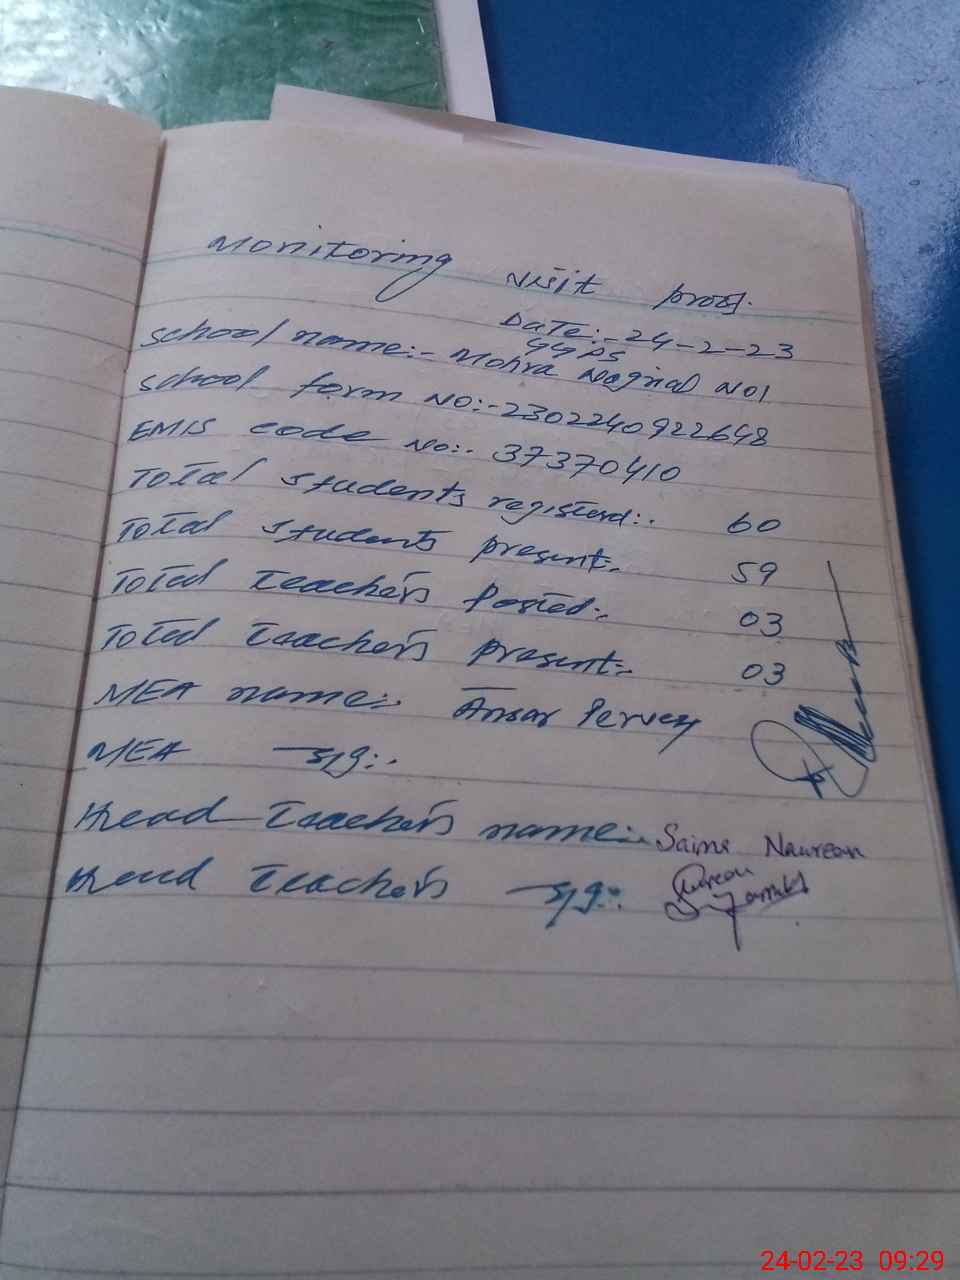 Monitoring visit proof.
Date:- 24-2-23
GGPS
School name:- Mohra Nagrial No1
School form No:- 2302240922648
EMIS code No:- 37370410
Total students registerd:- 60
Total students present:- 59
Total teachers Posted:- 03
Total teachers present:- 03
MEA name:- Ansar Pervez
MEA sig:-
Head teachers name:- Saima Naureen
Head teachers sig:-
24-02-23 09:29